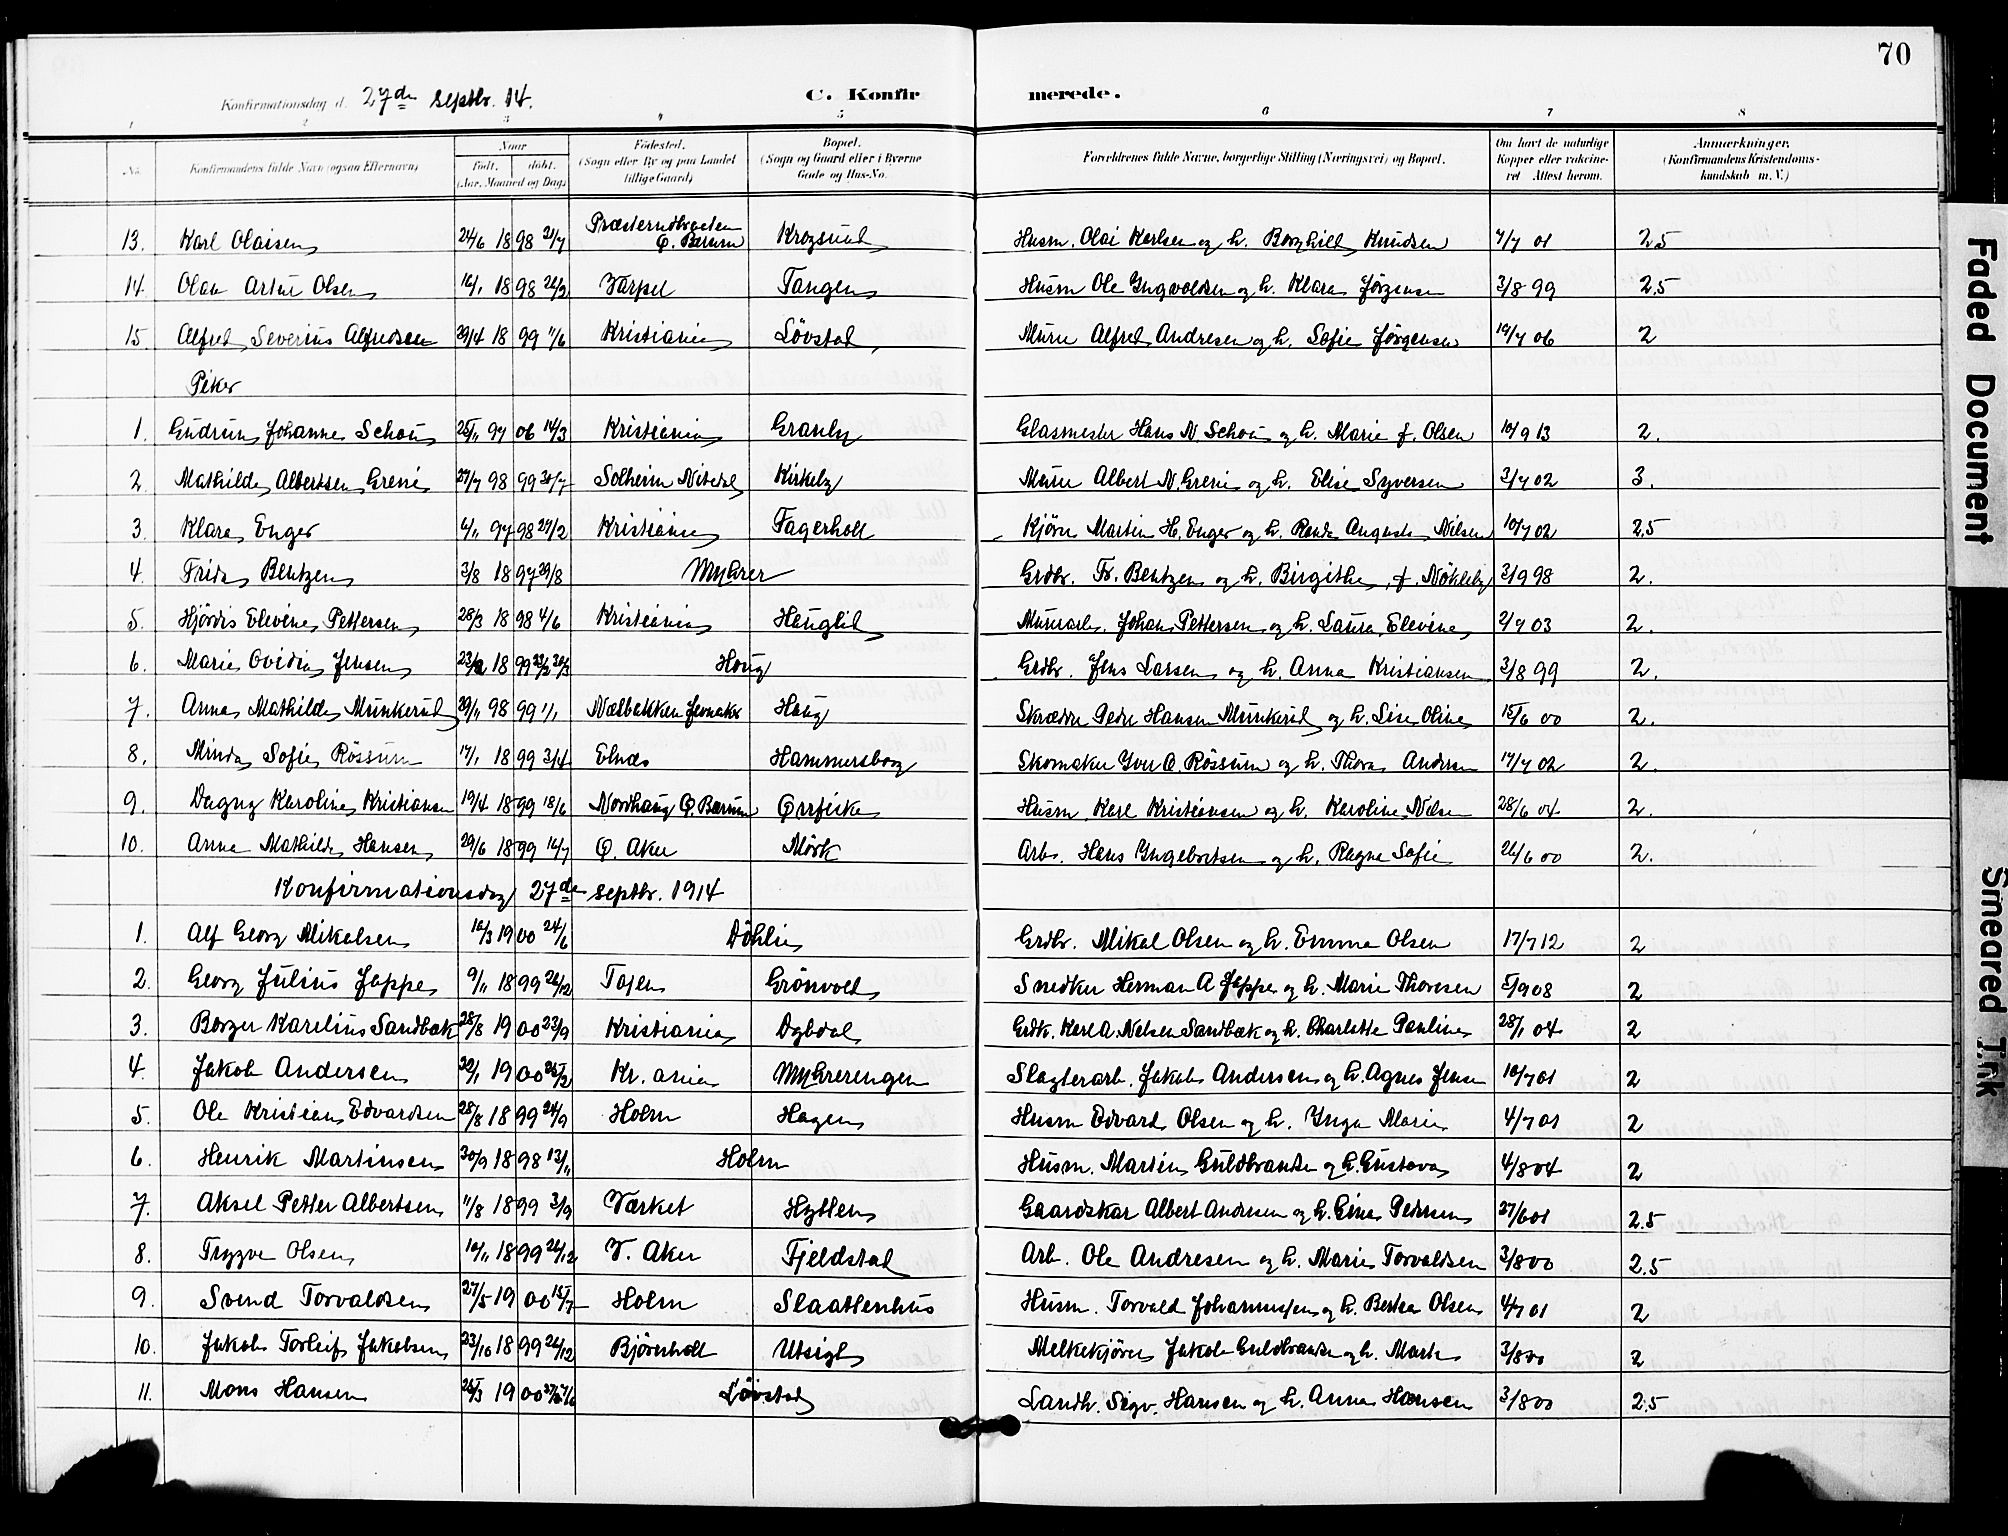 70
Konfirmationsdag d. 27de septbr. 14. C. Konfirmerede.
1 2 3 4 5 6 7 8
No. Konfirmandens fulde Navn (ogsaa Efternavn) Naar Født. døbt. (Aar, Maaned og Dag) Fødested. (Sogn eller By og paa Landet tillige Gaard) Bopæl. (Sogn og Gaard eller i Byerne Gade og Hus-No. Forældrenes fulde Navne, borgerlige Stilling (Næringsvei) og Bopæl. Om havt de naturlige Kopper eller vakcineret Attest herom. Anmærkninger. (Konfirmandens Kristendomskundskab m. V.)
13. Karl Olaisen 24/6 1898 21/7 Ø. Bærum Krogsund Husm. Olai Karlsen og h. Borghild Knudsen 4/7 01 2.5
14. Olav Artur Olsen 16/1 1898 Værpet Tangen Husm Ole Yngvoldsen og h. Klara Jørgensen 3/8 99 2.5
15. Alfred Severius Alfredsen 29/4 1899 11/6 Kristiania Løvstad Murer Alfred Andresen og h. Sofie Jørgensen 19/7 06 2
Piker
1. Gudrun Johanne Schou 25/11 97 06 14/3 Kristiania Granly Glasmester Hans N Schou og h. Marie f. Olsen 10/9 13 2.
2. Mathilde Albertsen Greni 27/7 98 99 30/7 Solheim Nitedal Kirkeby Murer Albert N. Greni og h. Elise Syversen 3/7 02 3.
3. Klara Enger 6/11 97 98 27/2 Kristiania Fagerholt Kjører Martin H. Enger og h. Randa Augusta Nilsen 10/7 02 2.5
4. Frida Bentzen 3/8 1897 29/8 Myhrer Grdbr. Fr. Bentzen og h. Birgithe f. Nøkleby 3/9 98 2.
5. Hjørdis Elevine Pettersen 28/3 1898 4/6 Kristiania Hauglid Murarb. Johan Pettersen og h. Laura Elevine 2/7 03 2.
6. Marie Ovidia Jensen 23/2 1899 Houg Grdbr. Jens Larsen og h. Anna Kristiansen 3/8 99 2.
7. Anna Mathilde Munkerud 29/11 98 99 1/1 Nælbakken Jevnaker Haug Skrædder Peder Hansen Munkerud og h. Lise Oline 15/6 00 2.
8. Minda Sofie Røssum 17/1 1899 3/4 Elnæs Hammersborg Skomaker Yver O. Røssum og h. Thora Andersen 17/7 02 2.
9. Dagny Karoline Kristiansen 19/4 1899 18/6 Nordhaug Ø. Bærum Ørrfiske Husm. Karl Kristiansen og h. Karoline Nilsen 28/6 04 2.
10. Anna Mathilde Hansen 29/6 1899 16/7 Ø. Aker Mørk Arb. Hans Yngebretsen og h. Ragna Sofie 26/6 00 2.
Konfirmationsdag 27de septbr. 1914
1. Alf Georg Mikalsen 16/3 1900 24/6 Døhlie Grdbr. Mikal Olsen og h. Emma Olsen 17/7 12 2
2. Georg Julius Jappe 9/11 1899 26/12 Tajen Grønvold Snedker Herman A Jappe og h. Marie Thoresen 5/9 08 2
3. Borger Karelius Sandbæk 28/8 1900 23/9 Kristiania Dybdal Grdbr. Karl A. Nelsen Sandbæk og h. Charlotte Pauline 28/1 04 2
4. Jakob Andersen 1900 25/2 Kr.ania Myhrerengen Slagterarb. Jakob Andersen og h. Agnes Jensen 10/7 01 2
5. Ole Kristian Edvardsen 28/8 1899 24/9 Holm Hagen Husm Edvard Olsen og h. Ynga Marie 4/7 01 2
6. Henrik Martinsen 30/9 1898 13/11 Holm Husm. Martin Guldbrandsen og h. Gustava 4/8 04 2
7. Aksel Petter Albertsen 11/8 1899 3/9 Værket Hytten Gaardskar Albert Andresen og h. Gina Pedersen 27/6 01 2.5
8. Trygve Olsen 10/11 1899 26/12 V. Aker Fjeldstad Arb. Ole Andresen og h. Marie Torvaldsen 3/8 00 2.5
9. Svend Torvaldsen 27/5 1900 15/7 Holm Slaattenhus Husm. Torvald Johannessen og h. Bertea Olsen 4/7 01 2
10. Jakob Torleif Jakobsen 23/10 1899 26/12 Bjørnholt Utsigt Melkekjører Jakob Guldbrandsen og h. Marte 3/8 00 2
11. Mons Hansen 25/3 1900 Løvstad Landh. Sigv. Hansen og h. Anna Hansen 3/8 00 2.5
Faded Document
Smeared Ink